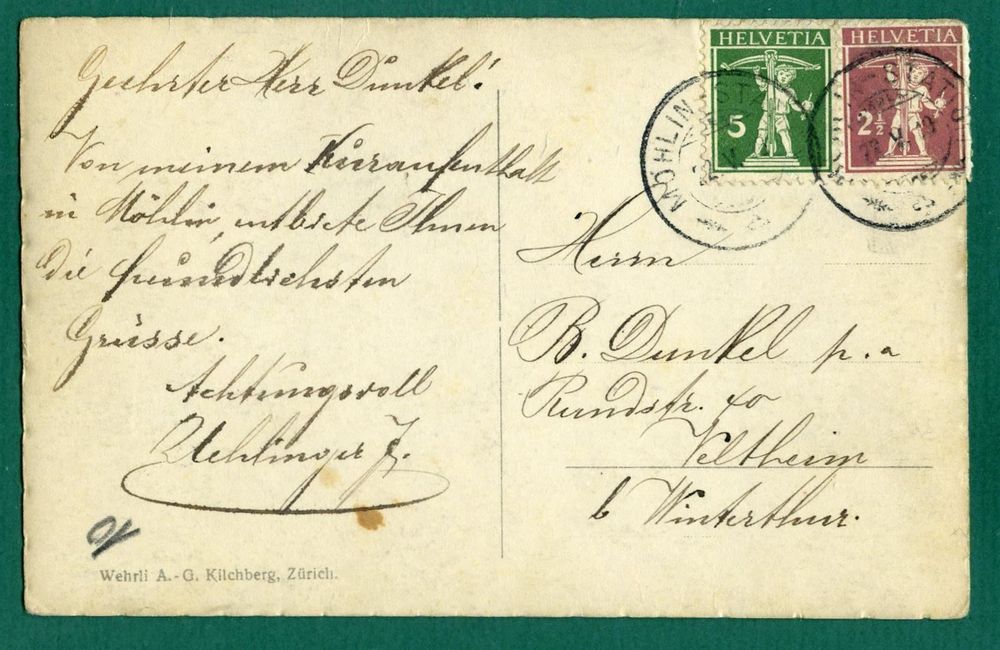 Geehrter Herr Dunkel!
Von meinem Kuraufenthalt
in Möhlin, entbiete Ihnen
die freundlichsten
Grüsse.
Achtungsvoll
Uehlinger J.
Wehrli A.-G. Kilchberg, Zürich.
HELVETIA
5
HELVETIA
2½
MÖHLIN
STATION
Herrn
B. Dunkel p. a
Rundstr. 40
Veltheim
b Winterthur.